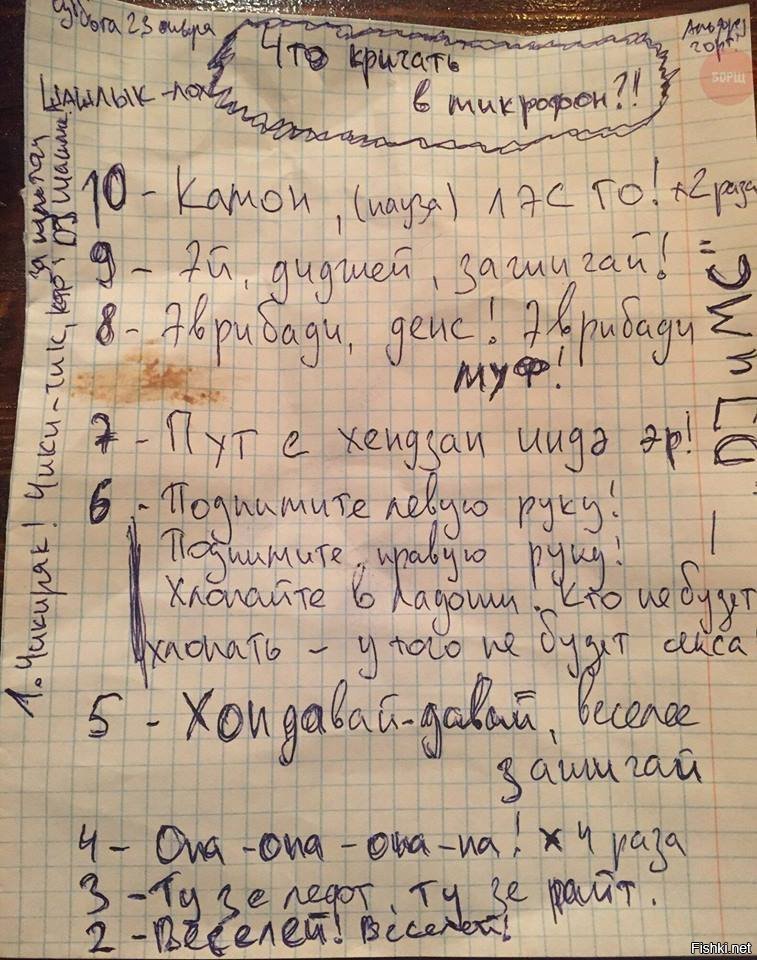 суббота 23 января
Что кричать
в микрофон?!!
БОРЩ
ШАШЛЫК-
10 - Камон, (пауза) ЛЭС ГО! x2 раза
9 - Эй, диджей, зажигай!
8 - Эврибади, денс! Эврибади
муф!
7 - Пут е хендзап индэ эр!
6 - Поднимите левую руку!
Поднимите правую руку!
Хлопайте в ладоши! Кто не будет
хлопать - у того не будет секса
5 - Хоп давай-давай, веселее
зажигай
4 - Опа -опа -опа -па! x 4 раза
3 - Ту зе лефт, ту зе райт.
2 - Веселей! Веселей!
1. Чикиряк! Чики-тик,
за пультом
DJ
Fishki.net